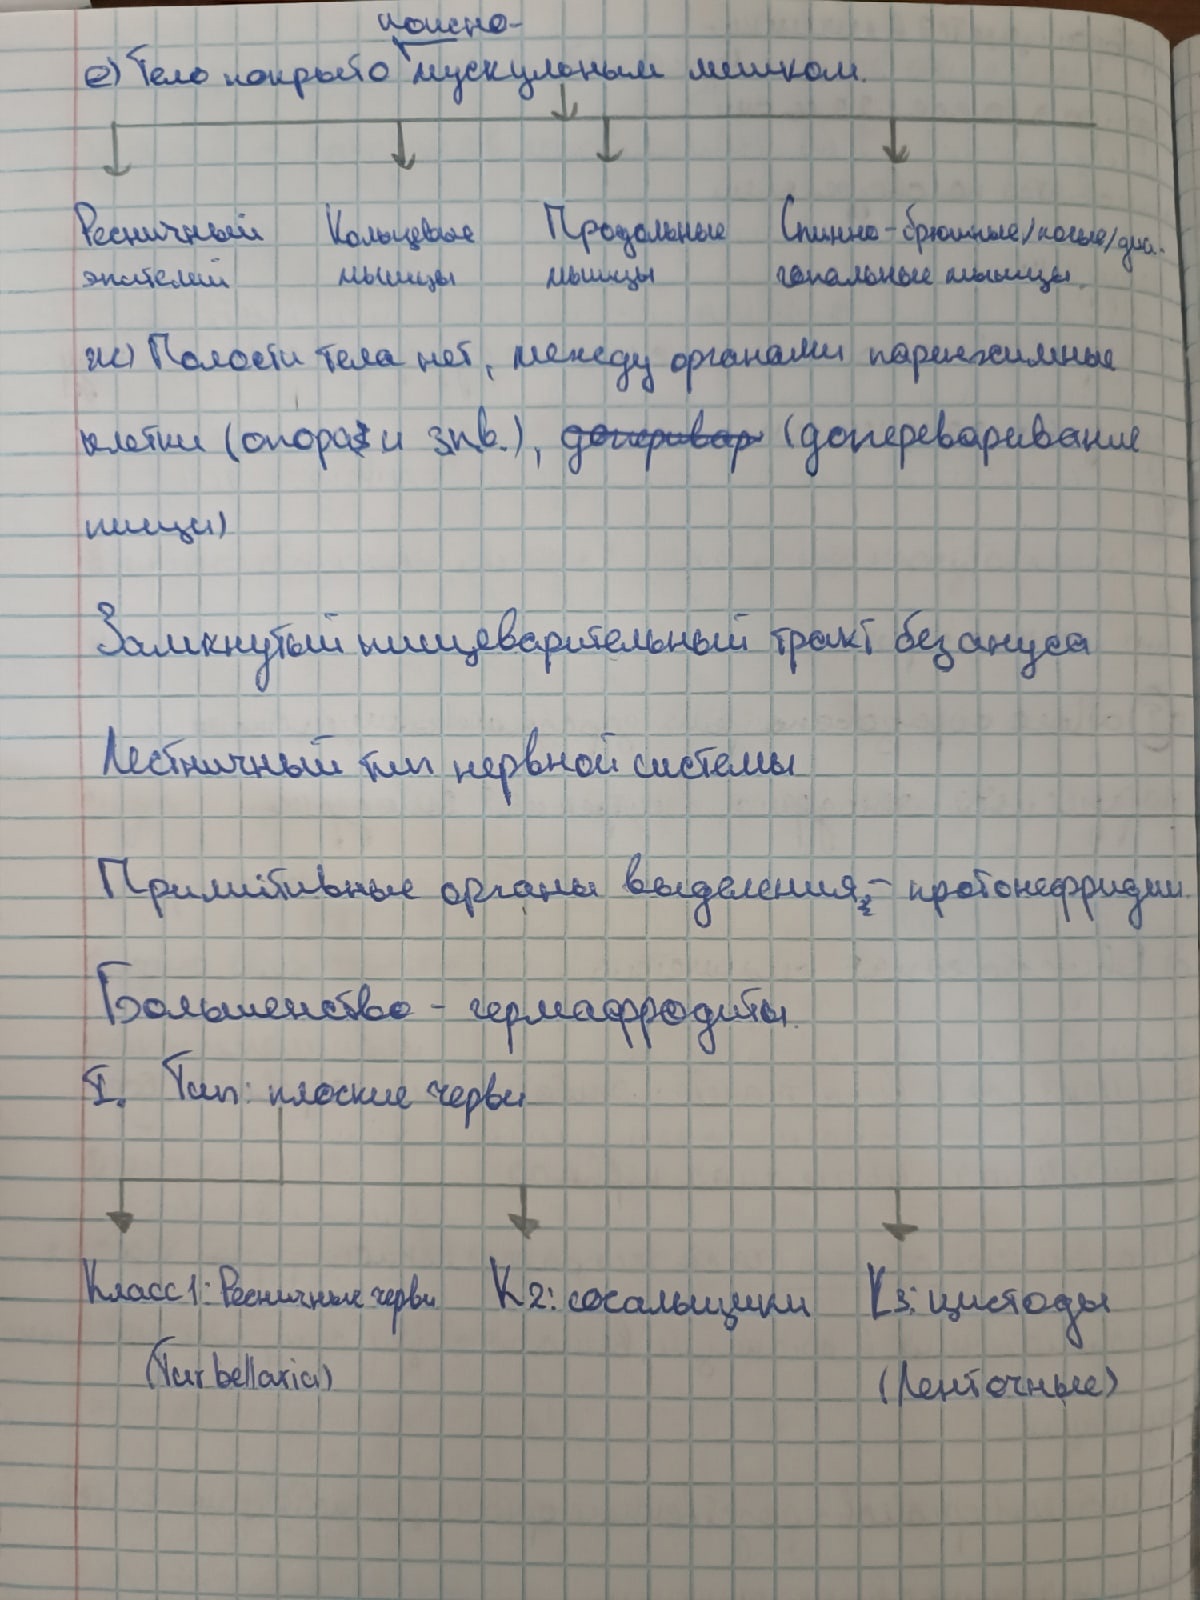 кожно-
е) Тело покрыто мускульным мешком.
Ресничный Кольцевые Продольные Спинно-брюшные/косые/диа-
эпителий мышцы мышцы гональные мышцы.
ж) Полости тела нет, между органами паренхимные
клетки (опора и зпв.), допервар (доперевaривание
пищи)
Замкнутый пищеварительный тракт без ануса
Лестничный тип нервной системы
Примитивные органы выделения - протонефридии.
Большенство - гермафродиты.
I. Тип: плоские черви
Класс1: Ресничные черви К2: сосальщики К3: цистоды
(Turbellaria) (Ленточные)